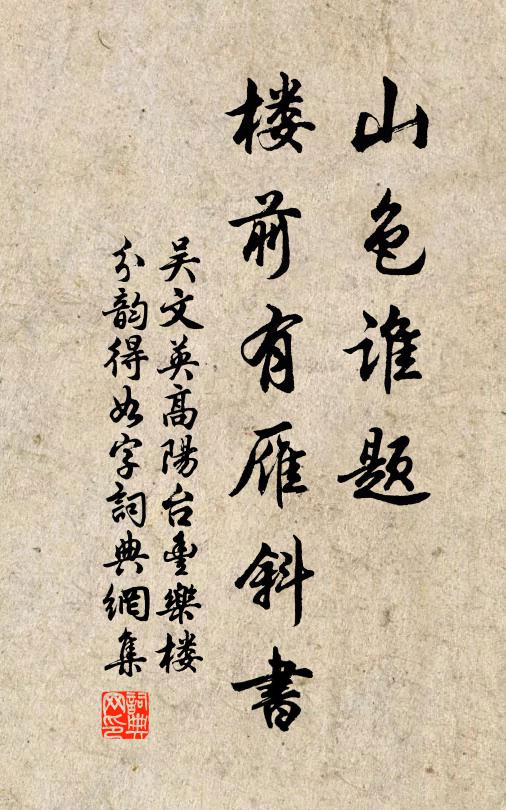 山色谁题
楼前有雁斜書
吴文英高陽台豊樂楼
分韵得如字詞典網集
詞典网印